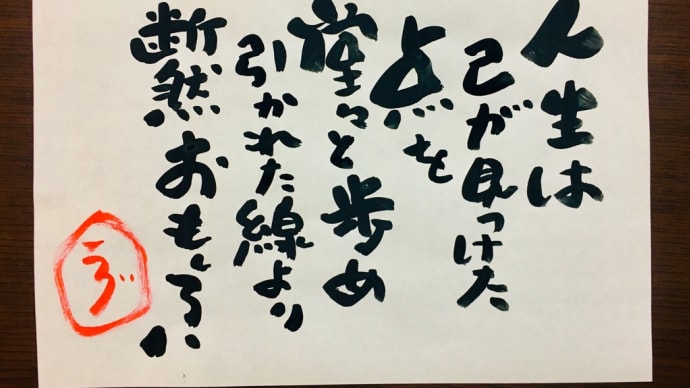 人生は
己が見つけた
点を
堂々と歩め
引かれた線より
断然おもしろい